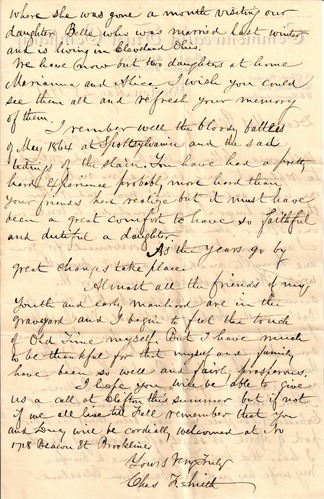 where she was gone a month visiting our
daughter Belle who was married last winter
and is living in Cleveland Ohio.
We have now but two daughters at home
Marianna and Alice. I wish you could
see them all and refresh your memory
of them.
I rember well the bloody battles
of May 1864 at Spottsylvania and the sad
tidings of the slain. You have had a pretty
hard experience probably more hard than
your friends here realize but it must have
been a great comfort to have so faithful
and dutiful a daughter.
As the years go by
great changes take place
Almost all the friends of my
youth and early manhood are in the
graveyard and I begin to feel the touch
of Old Time myself. But I have much
to be thankful for that myself and family
have been so well and fairly prosperous.
I hope you will be able to give
us a call at Clifton this summer but if not
if we all live till Fall remember that you
and Lucy will be cordially welcomed at No
1718 Beacon St Brookline
Yours Very Truly
Chas F. Smith